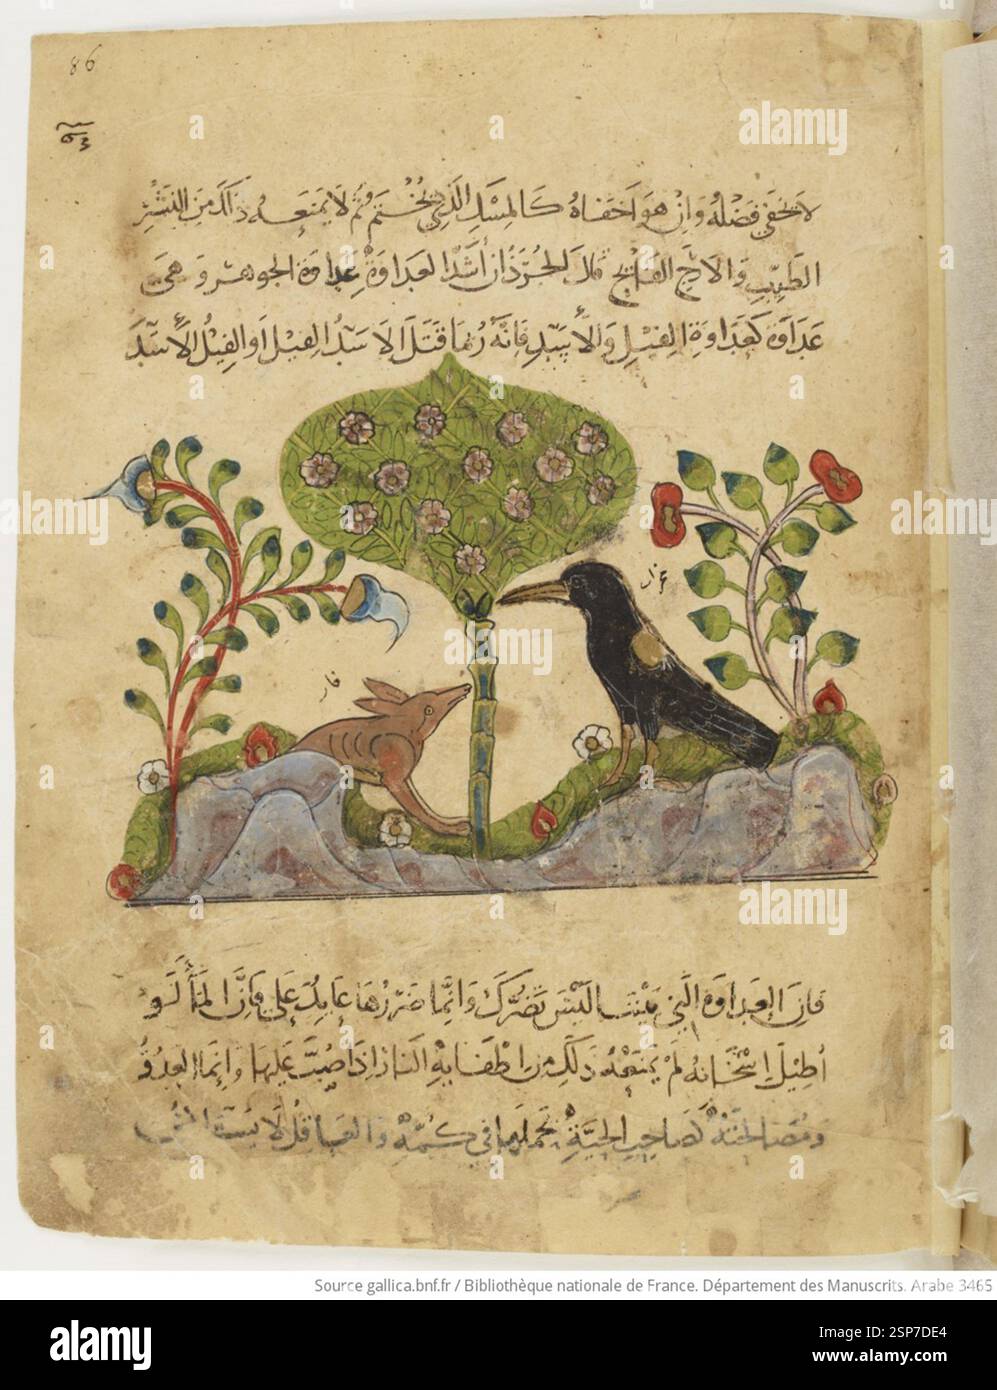 86
لا يخفى فضله وان هو اخفاه كالمسك الذي يختم ثم لا يمنعه ذلك من النشر
الطيب والارج الفايح قال الجرذ ان أشد العداوة عداوة الجوهر وهي
عداوة كعداوة الفيل والأسد فانه ربما قتل الاسد الفيل او الفيل الأسد
غراب
فار
فان العداوة التي بيننا ليس تضرك وانما ضررها عايد علي فان الماء لو
أطيل اسخانه لم يمنعه ذلك من اطفايه النار اذا صب عليها وانما العدو
لصاحب الحية يحملها في كمه والعاقل لا
alamy
Source gallica.bnf.fr / Bibliothèque nationale de France. Département des Manuscrits. Arabe 3465
alamy
Image ID: 2SP7DE4
www.alamy.com